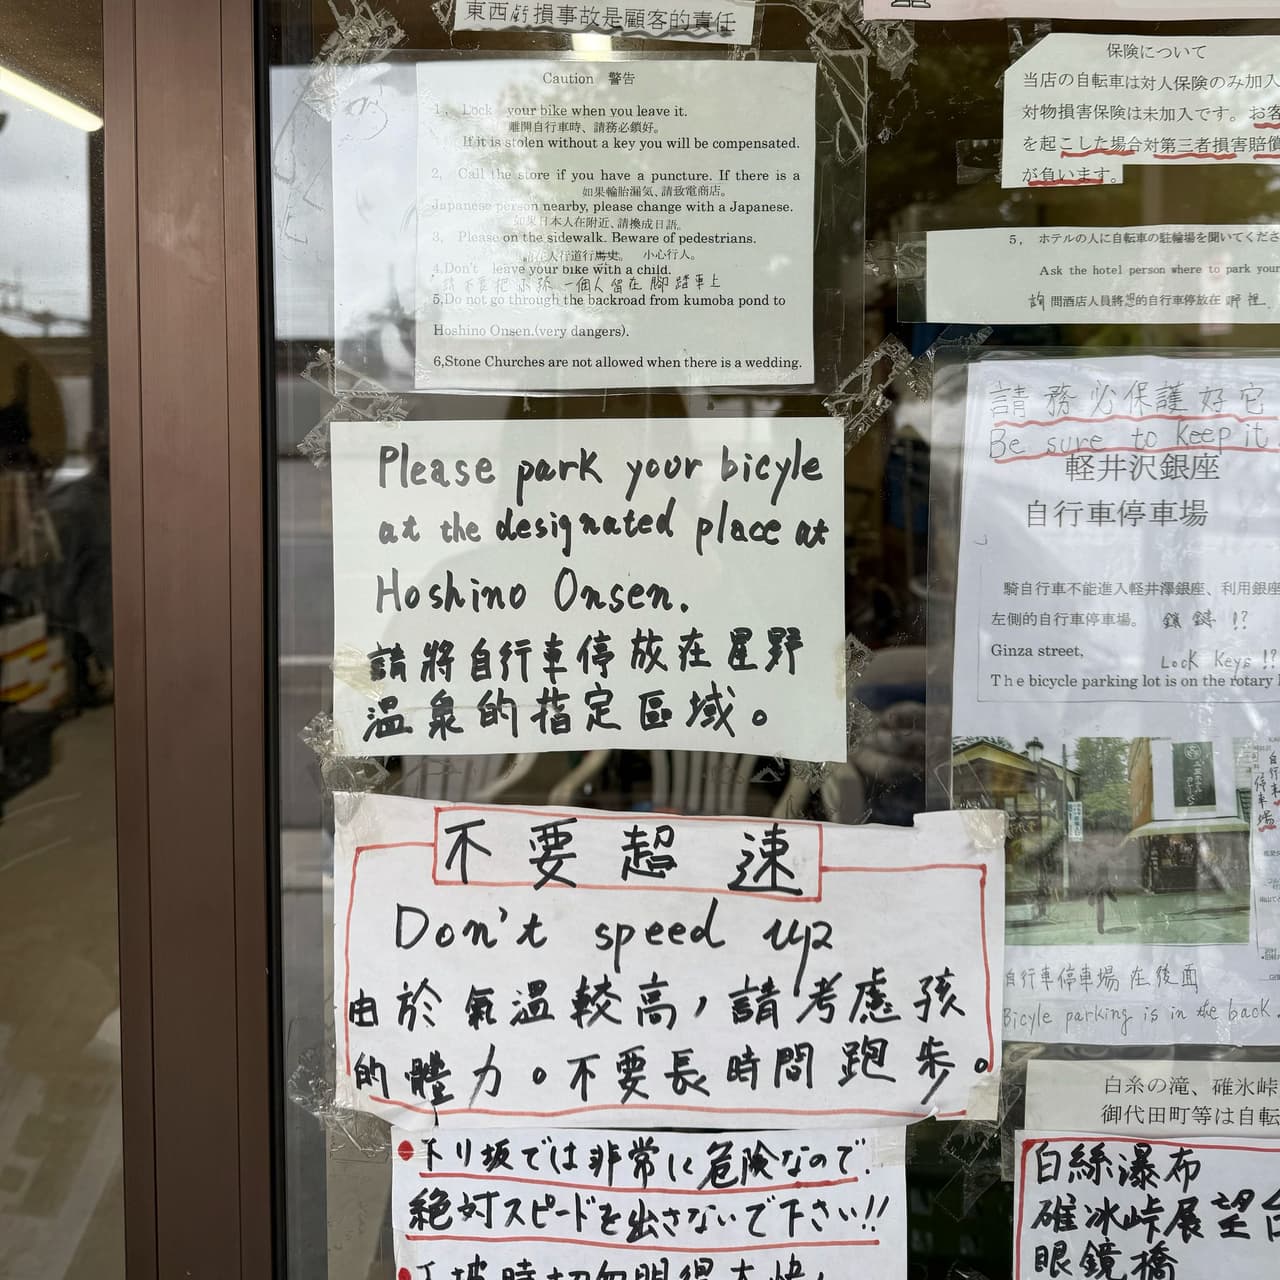 東西虧損事故是顧客的責任
Caution 警告
1, Lock your bike when you leave it.
離開自行車時、請務必鎖好。
If it is stolen without a key you will be compensated.
2, Call the store if you have a puncture. If there is a
如果輪胎漏気、請致電商店。
Japanese person nearby, please change with a Japanese.
如果日本人在附近、請換成日語。
3, Please on the sidewalk. Beware of pedestrians.
人行道行 小心行人。
4.Don't leave your bike with a child.
請不要把 一個人留在腳踏車上
5.Do not go through the backroad from kumoba pond to
Hoshino Onsen.(very dangers).
6,Stone Churches are not allowed when there is a wedding.
Please park your bicyle
at the designated place at
Hoshino Onsen.
請將自行車停放在星野
溫泉的指定區域。
不要超速
Don't speed up
由於氣溫較高,請考慮孩
的體力。不要長時間跑步。
•下り坂では非常に危険なので
絶対スピードを出さないで下さい!!
保険について
当店の自転車は対人保険のみ加入
対物損害保険は未加入です。お客
を起こした場合対第三者損害賠償
が負います。
5, ホテルの人に自転車の駐輪場を聞いてくださ
Ask the hotel person where to park your
詢問酒店人員將您的自行車停放在哪裡
請務必保護好它
Be sure to keep it
軽井沢銀座
自行車停車場
騎自行車不能進入軽井澤銀座、利用銀座
左側的自行車停車場。 鎖鏈!?
Ginza street, Lock Keys!?
The bicycle parking lot is on the rotary
自行車停車場
自行車停車場在後面
Bicycle parking is in the back.
白糸の滝、碓氷峠
御代田町等は自転
白絲瀑布
碓冰峠展望台
眼鏡橋